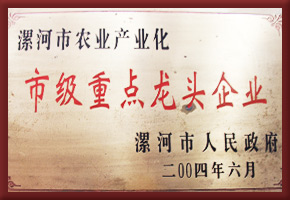 漯河市农业产业化
市级重点龙头企业
漯河市人民政府
二00四年六月